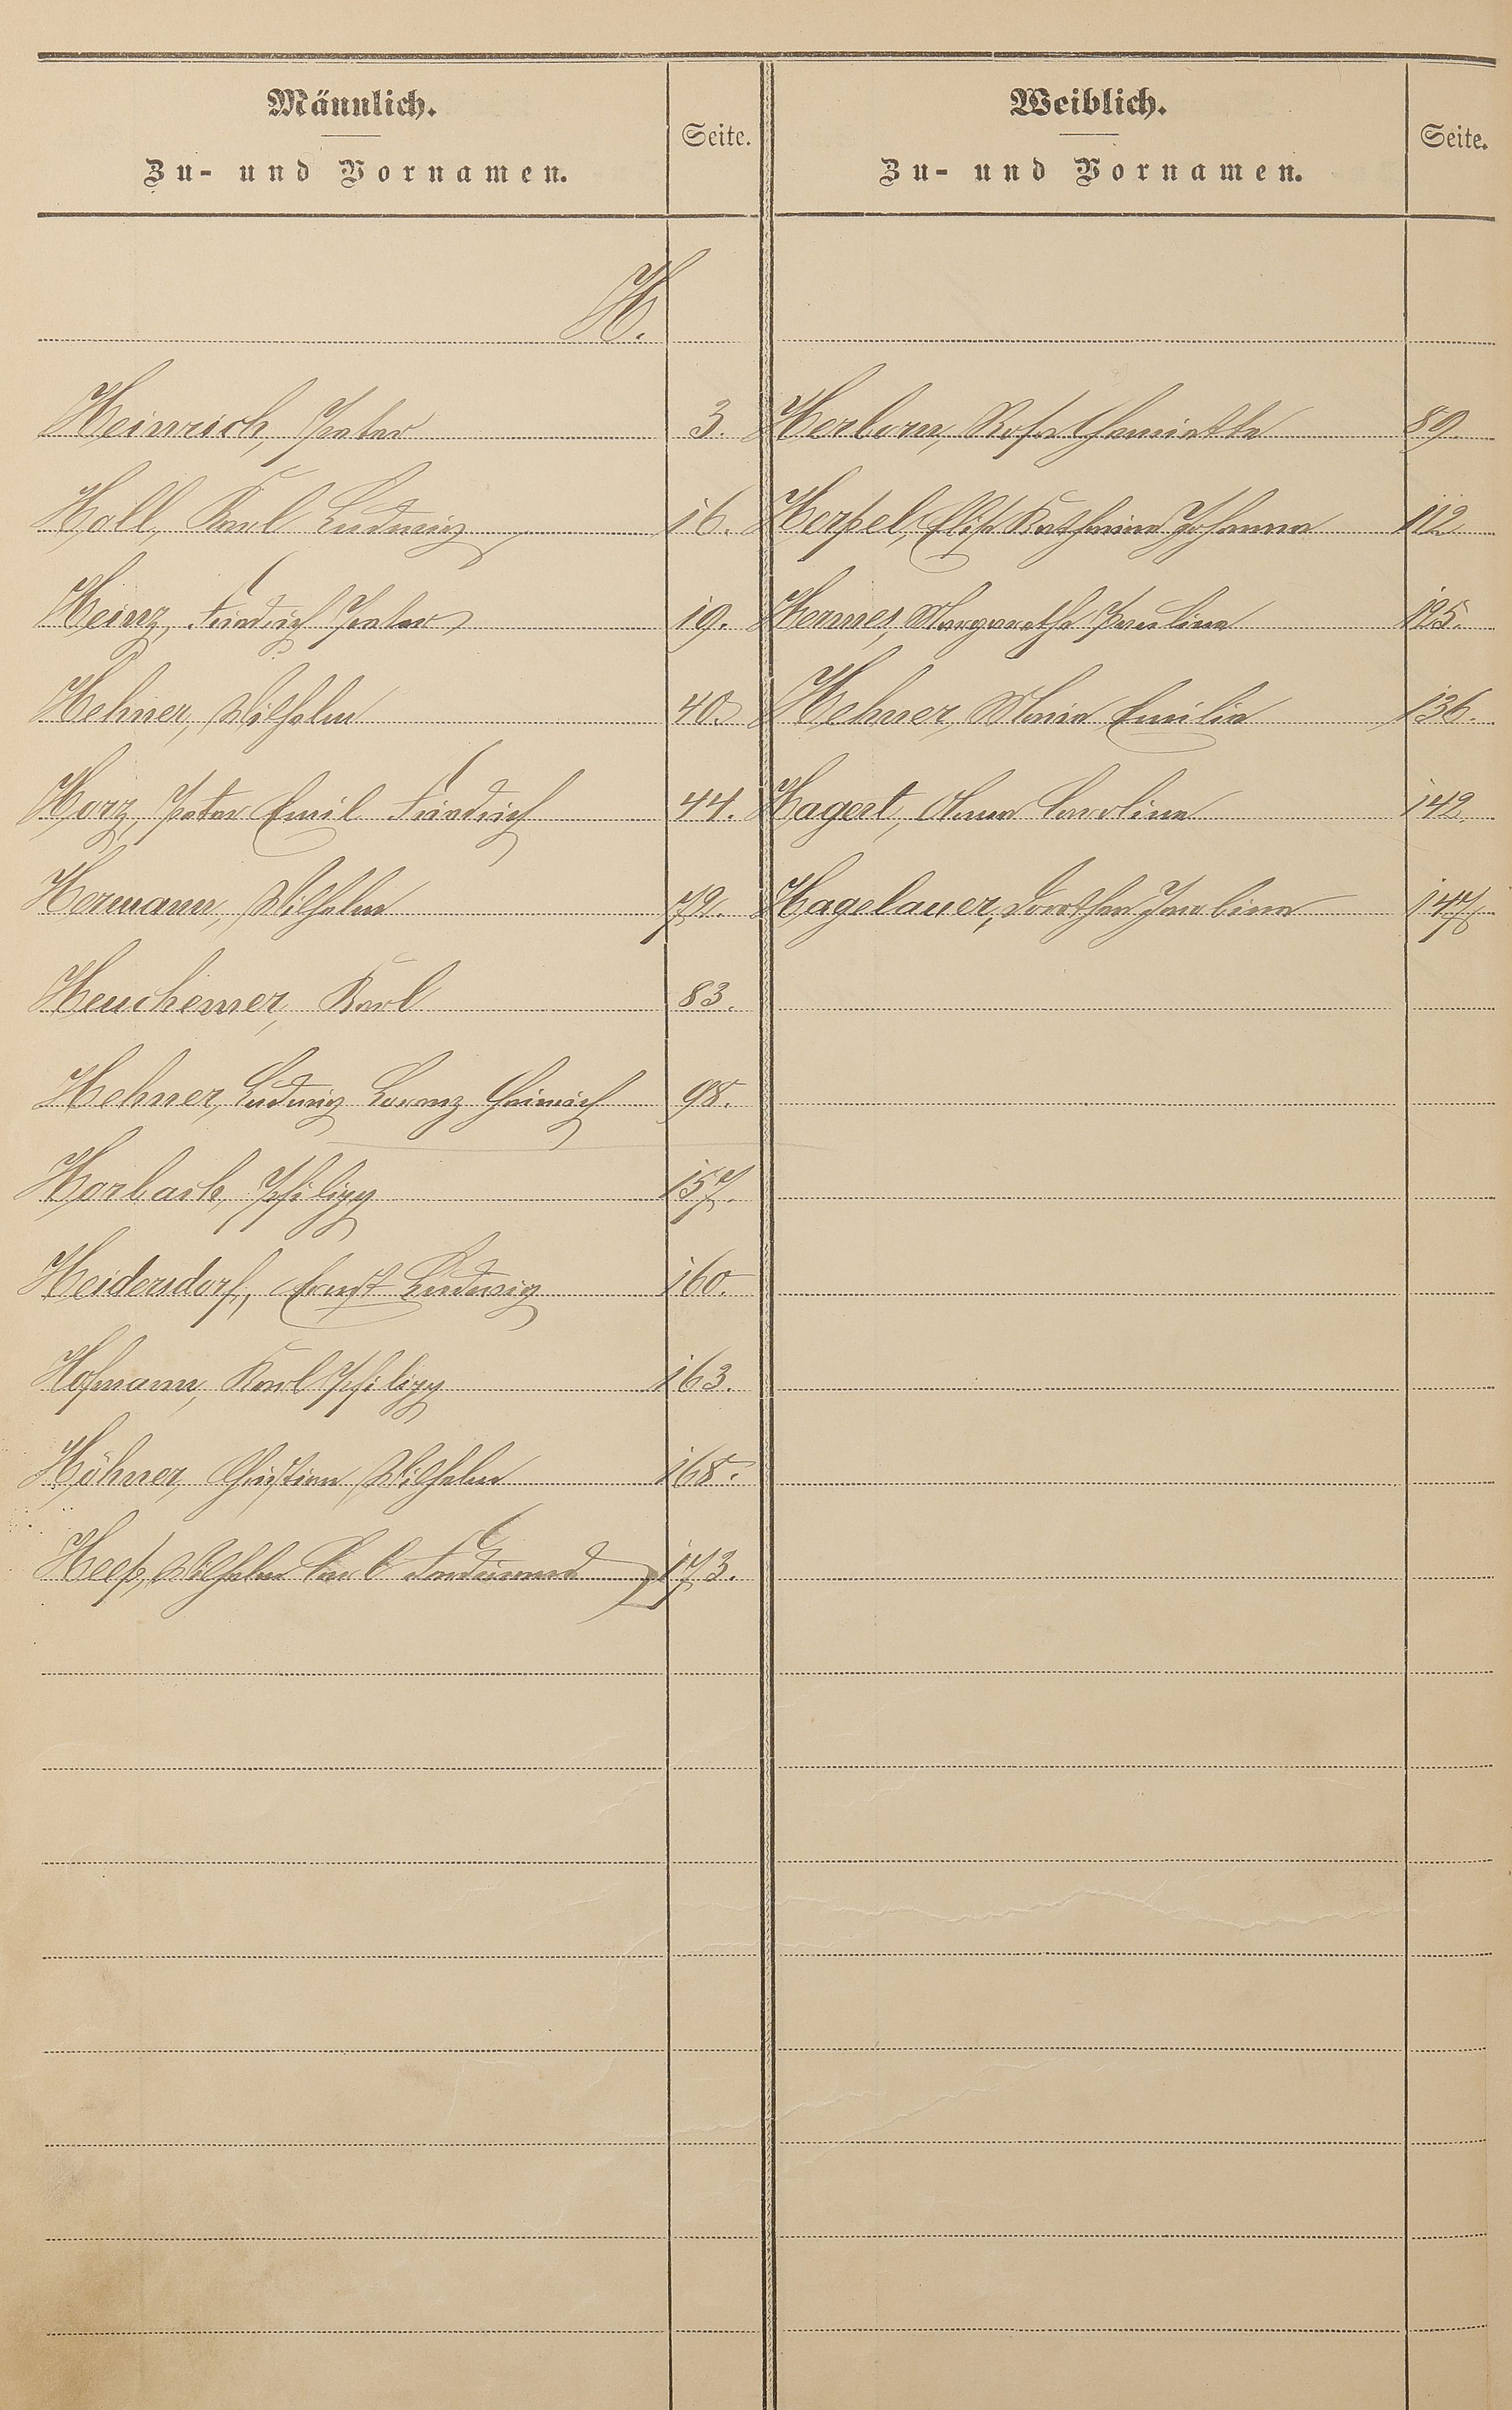 Männlich.
Zu- und Vornamen.
Seite.
Weiblich.
Zu- und Vornamen.
Seite.
H.
Heinrich, Peter 3.
Holl, Karl Ludwig 16.
Heinz, Friedrich Peter 19.
Hehner, Wilhelm 40.
Horz, Peter Emil Friedrich 44.
Hermann, Wilhelm 79.
Heuchemer, Karl 83.
Hehner, Ludwig Lorenz Heinrich 98.
Horbach, Philipp 157.
Heidersdorf, Ernst Ludwig 160.
Hofmann, Karl Philipp 163.
Höhner, Christian Wilhelm 168.
Heep, Wilhelm Karl Ferdinand 173.
Herborn, Rosa Henriette 89.
Herpel, Elise Katharina Johanna 112
Hermes, Margarethe Pauline 125.
Hehner, Maria Emilie 136.
Hagert, Anna Caroline 142.
Hagelauer, Dorothea Jacobine 147